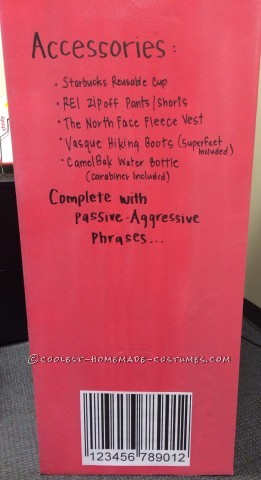 Accessories:
• Starbucks Reusable Cup
• REI Zipoff Pants/shorts
• The North Face Fleece Vest
• Vasque Hiking Boots (superfeet
included)
• CamelBak Water Bottle
(carabiner included)
Complete with
Passive-Aggressive
Phrases...
©COOLEST-HOMEMADE-COSTUMES.COM
123456 789012